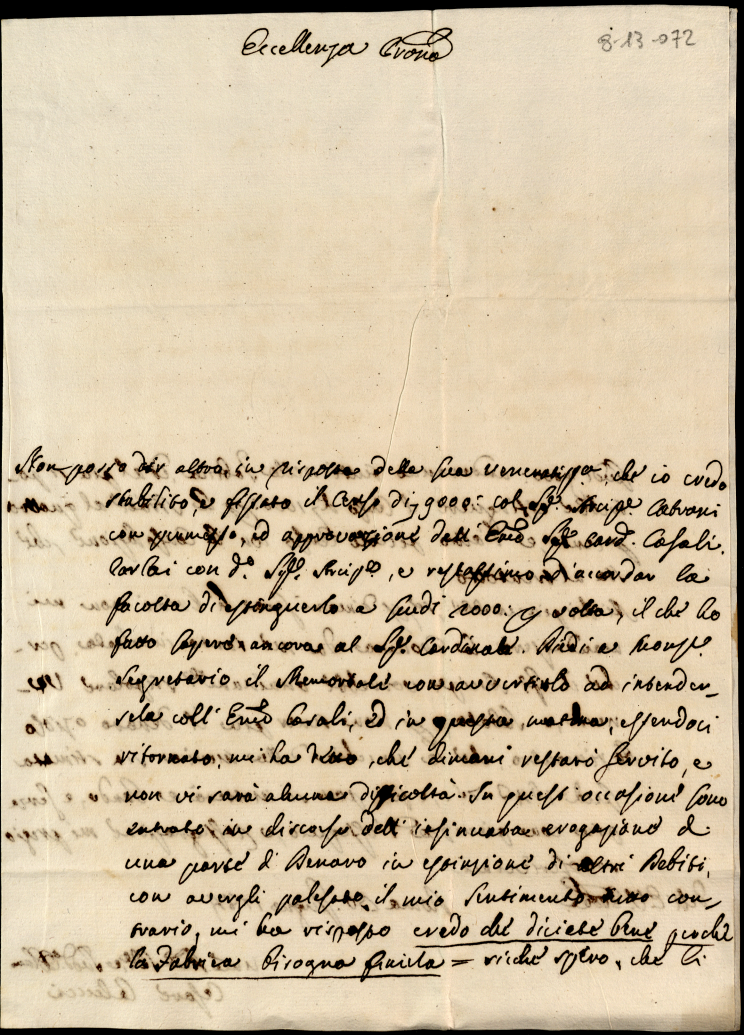 Eccellenza Prona
8-13-072
Non posso dir altro, in risposta della sua veneratissma, che io credo
stabilito, e fissato il Censo di 9000: col Sigr. Arcipe Catrani
con permesso, ed approvazione dell' Emo Sigr Card. Casali.
Parlai con do. Sigr. Arcipe, e restassimo d'accordar la
facoltà di estinguerlo a scudi 2000: p volta, il che ho
fatto sapere ancora al Sigr. Cardinale. Diedi a Monsre.
Segretario il Memoriale con avvertirlo ad intender-
sela coll' Emo Casali, ed in questa matina, essendoci
ritornato, mi ha detto, che dimani restarò servito, e
non vi sarà alcuna difficoltà. In quest' occasione sono
entrato in discorso dell' insinuata erogazione d
una parte di Denaro in estinzione di altri Debiti,
con avergli palesato il mio sentimento tutto con-
trario, mi ha risposto credo che diciate bene perche
la Fabrica bisogna finirla = siche spero, che li